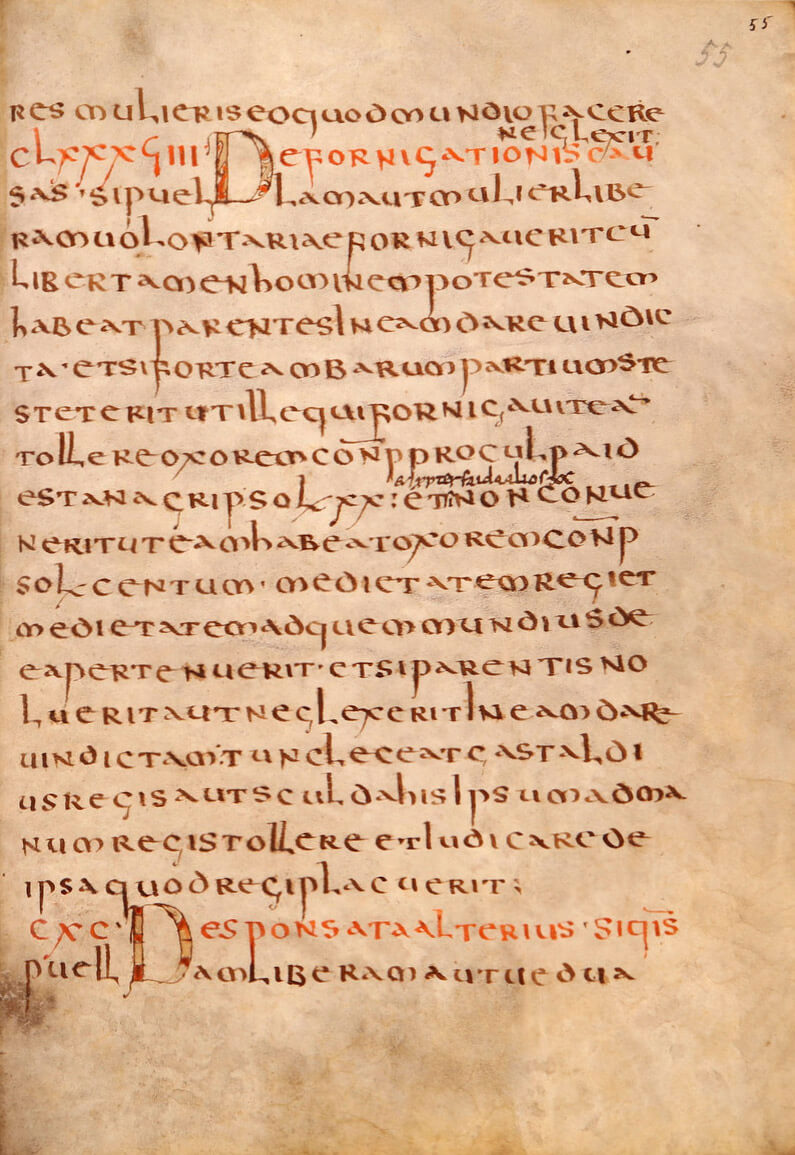 55
55
res mulieris eo quod mundio facere
neglexit
clxxxVIIII De fornicationis cau
sas · si puella aut mulier libe
ra uolontariae fornicauerit cū
libertamen homine potestatem
habeat parentes in eam dare uindic
ta · et si forte ambarum partium ste
steterit ut ille qui fornicauit ea
tollere oxorem conp pro culpa id
est anagrip sol xx : et non conue
nerit ut eam habeat oxorem conp
sol centum · medietatem regi et
medietatem ad quem mundius de
ea pertenuerit · et si parentis no
luerit aut neglexerit in eam dare
uindictam · tunc leceat gastaldi
us regis aut sculdahis ipsum ad ma
num regis tollere et iudicare de
ipsa quod regi placuerit ;
cxc · De sponsata alterius · si q̄is
puellam liberam aut uedua